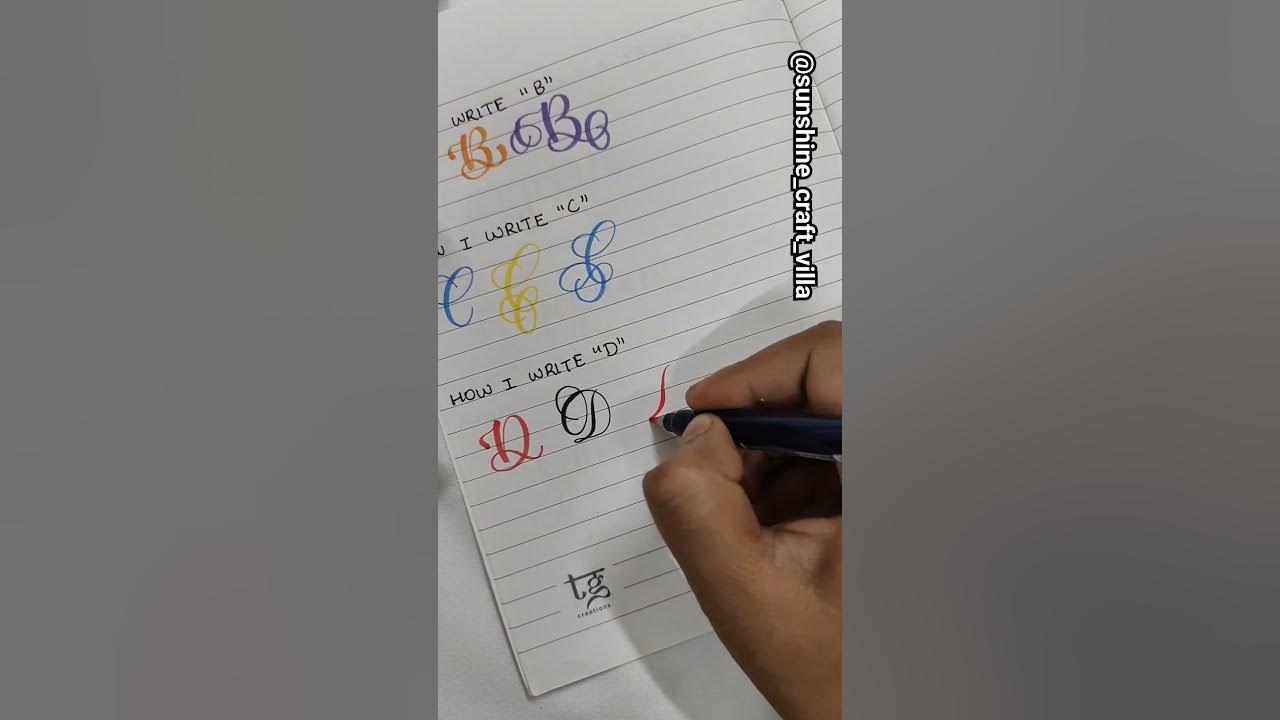 WRITE "B"
B B
I WRITE "C"
C C C
HOW I WRITE "D"
D D
tg
creations
@sunshine_craft_villa